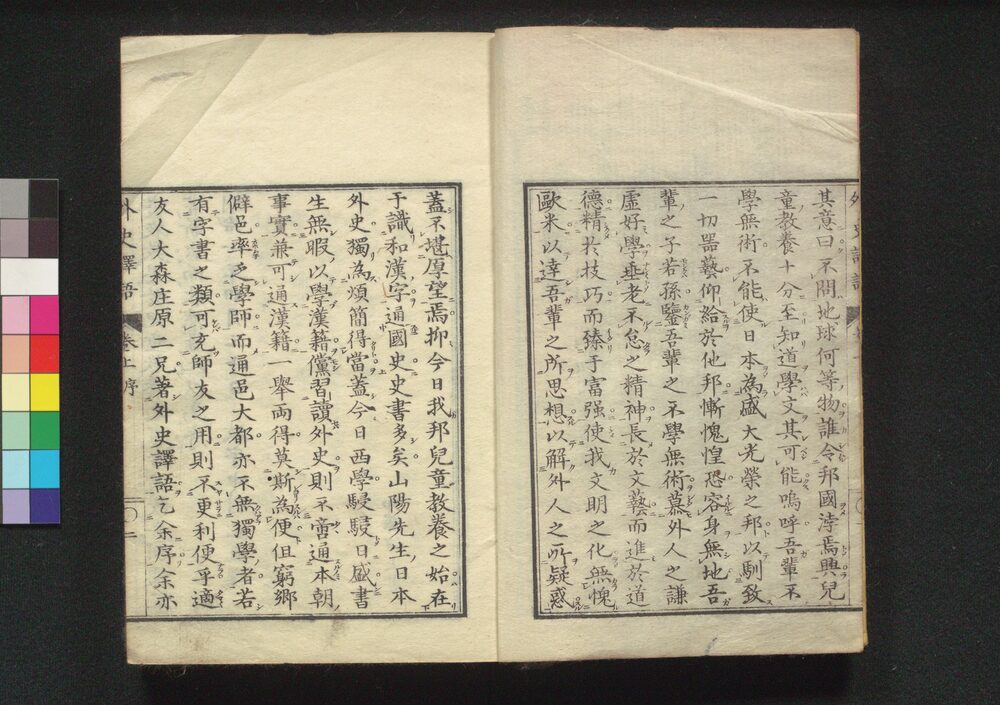 其意曰不問地球何等物誰令邦國浡焉興兒
童教養十分至知道學文其可能嗚呼吾輩不
學無術不能使日本為盛大光榮之邦以馴致
一切器藝仰給於他邦慚愧惶恐容身無地吾
輩之子若孫鑒吾輩之不學無術慕外人之謙
虛好學垂老不怠之精神長於文藝而進於道
德精於技巧而臻于富强使我文明之化無愧
歐米以達吾輩之所思想以解外人之所疑惑
蓋不堪厚望焉抑今日我邦兒童教養之始在
于識和漢字通國史史書多矣山陽先生日本
外史獨為煩簡得當蓋今日西學駸駸日盛書
生無暇以學漢籍儻習讀外史則不啻通本朝
事實兼可通漢籍一舉兩得莫斯為便但窮鄉
僻邑率乏學師而通邑大都亦不無獨學者若
有字書之類可充師友之用則不更利便乎適
友人大森庄原二兄著外史譯語乞余序余亦
外史譯語 卷上序 二